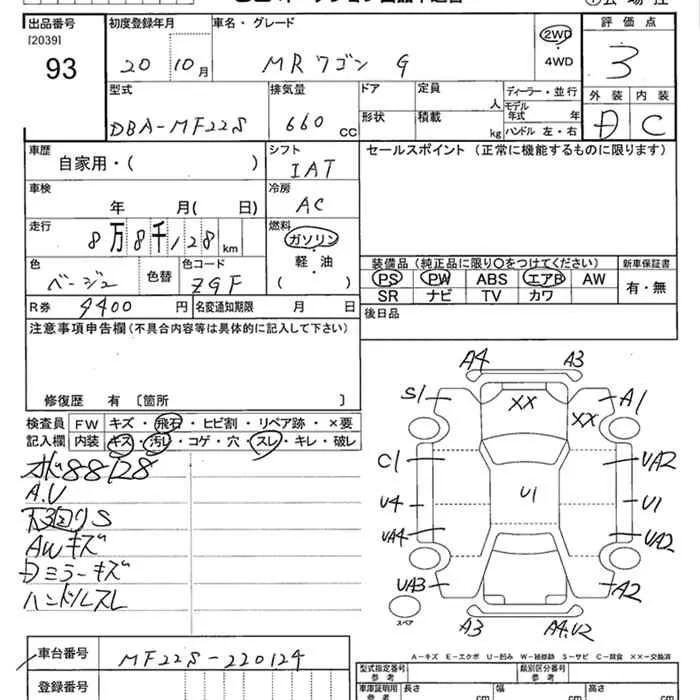 出品番号 初度登録年月 車名・グレード 評価点
[2039] 93 20 10月 MRワゴン G 2WD ・ 4WD 3
型式 排気量 ドア 定員 人 ディーラー・並行 外装 内装
DBA-MF22S 660 CC 形状 積載 kg モデル年式 年 ハンドル 左・右 D C
車歴 自家用・( ) シフト IAT セールスポイント (正常に機能するものに限ります)
車検 年 月( 日) 冷房 AC
走行 8万8千128 km 燃料 ガソリン ・ 軽・油 ( )
色 ベージュ 色替 色コード ZGF
装備品 (純正品に限り○をつけてください) 新車保証書
PS PW ABS エアB AW 有・無
SR ナビ TV カワ
R券 9400 円 名変通知期限 月 日 後日品
注意事項申告欄 (不具合内容等は具体的に記入して下さい)
修復歴 有 〔箇所 〕
検査員 FW キズ・飛石・ヒビ割・リペア跡・×要
記入欄 内装 キズ・汚レ・コゲ・穴・スレ・キレ・破レ
88128
A.U
S
AWキズ
Dミラーキズ
ハンドルスレ
A4 A3
S1 XX XX A1
C1 UA2
U4 U1 U1
UA4 UA2
UA3 A2
スペア A3 A4.U2
A-キズ E-エクボ U-凹み W-補修跡 S-サビ C-腐食 ××-交換済
車台番号 MF22S-220124
登録番号
型式指定番号 参考 類別区分番号 参考
車庫証明用 参考 長さ cm 幅 cm 高さ cm